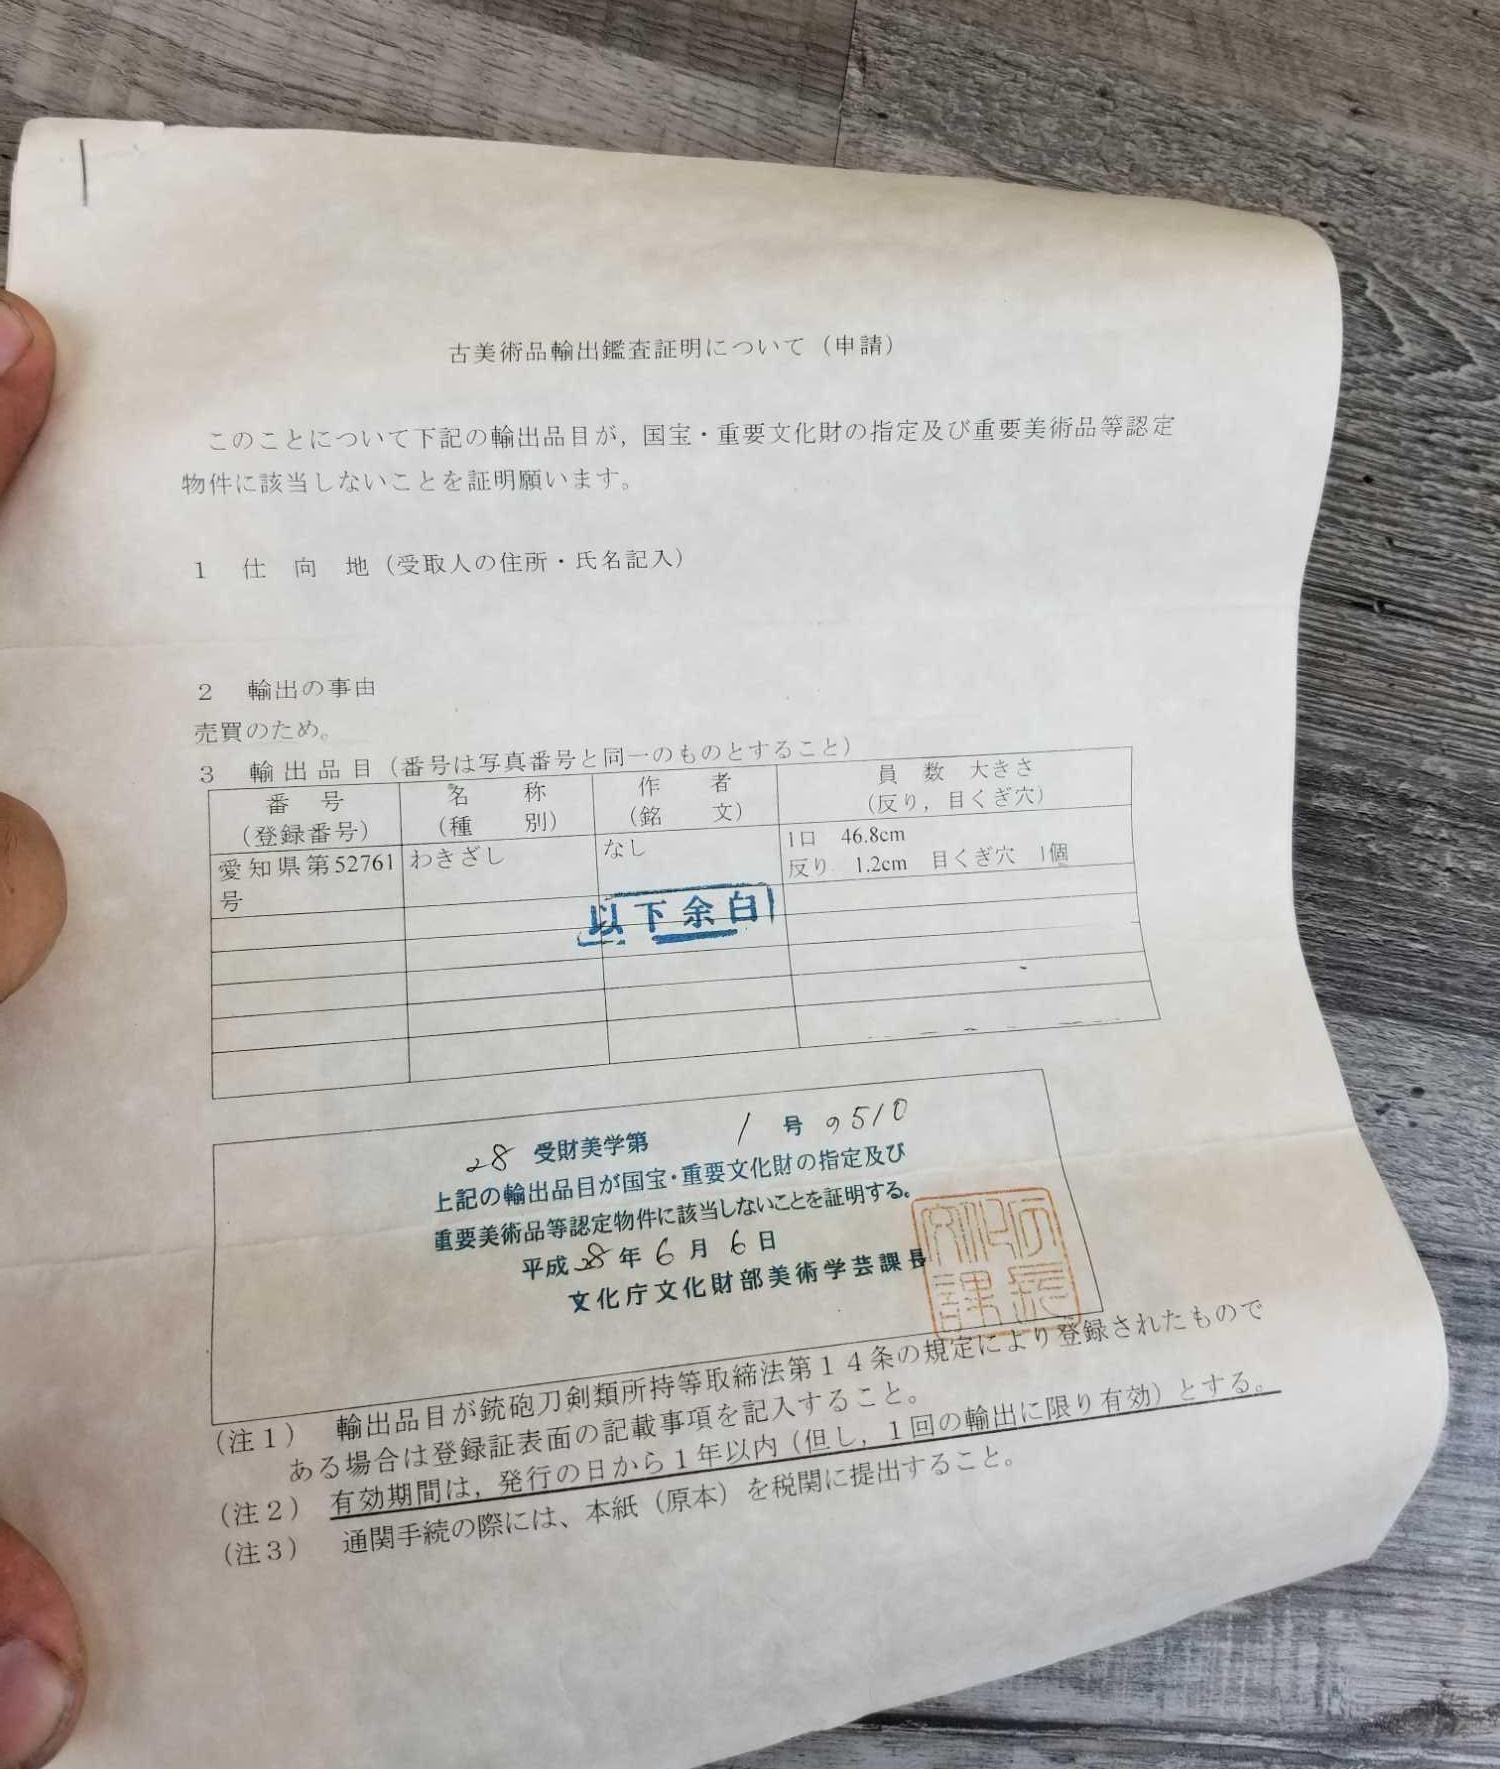 古美術品輸出鑑査証明について（申請）
このことについて下記の輸出品目が，国宝・重要文化財の指定及び重要美術品等認定
物件に該当しないことを証明願います。
1　仕　向　地（受取人の住所・氏名記入）
2　輸出の事由
売買のため。
3　輸出品目（番号は写真番号と同一のものとすること）
番　号　名　称　作　者　員　数　大きさ
（登録番号）（種　別）（銘　文）（反り，目くぎ穴）
愛知県第52761　わきざし　なし　1口　46.8cm
号　反り　1.2cm　目くぎ穴　1個
以下余白
28 受財美学第　1　号の510
上記の輸出品目が国宝・重要文化財の指定及び
重要美術品等認定物件に該当しないことを証明する。
平成28年6月6日
文化庁文化財部美術学芸課長
（注１）　輸出品目が銃砲刀剣類所持等取締法第１４条の規定により登録されたもので
ある場合は登録証表面の記載事項を記入すること。
（注２）　有効期間は，発行の日から１年以内（但し，１回の輸出に限り有効）とする。
（注３）　通関手続の際には、本紙（原本）を税関に提出すること。